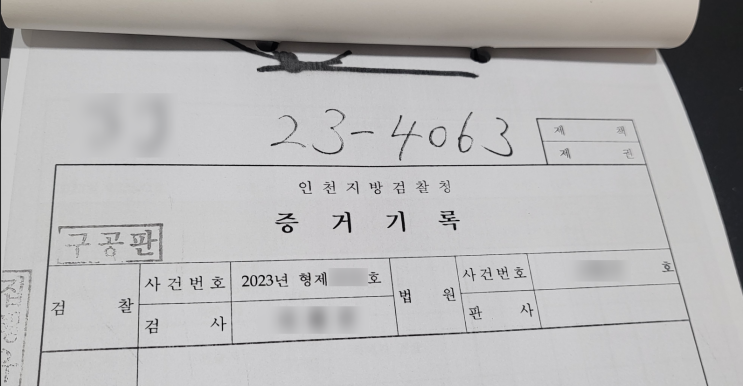 23-4063
제 책
제 권
인천지방검찰청
증거기록
구공판
검찰 사건번호 2023년 형제 호 법원 사건번호 호
검사 판사